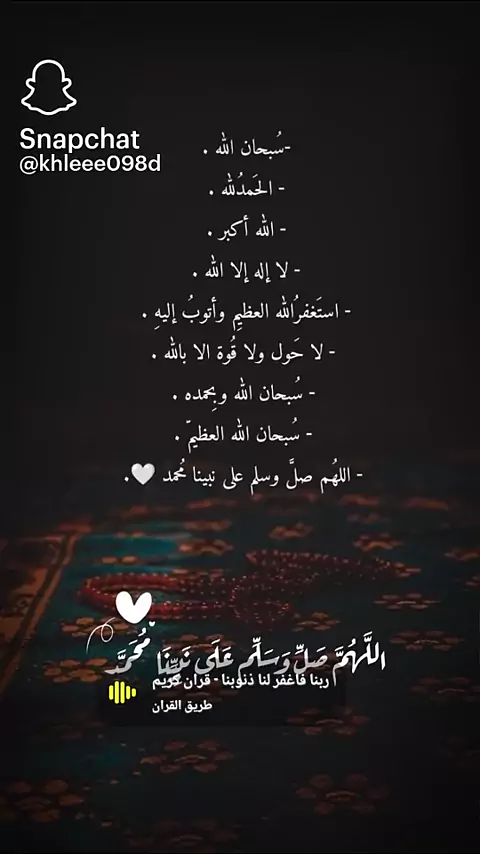 Snapchat
@khleee098d
-سُبحان الله .
- الحَمدُلله .
- الله أكبر .
- لا إله إلا الله .
- استَغفرُالله العظيمِ وأتوبُ إليهِ .
- لا حَول ولا قُوة الا بالله .
- سُبحان الله وبِحمده .
- سُبحان الله العظيمّ .
- اللهُم صلَّ وسلم على نبينا مُحمد 🤍.
اللَّهُمَّ صَلِّ وَسَلِّم عَلَى نَبِيِّنَا مُحَمَّدَ
ربنا فاغفر لنا ذنوبنا - قران كريم
طريق القران